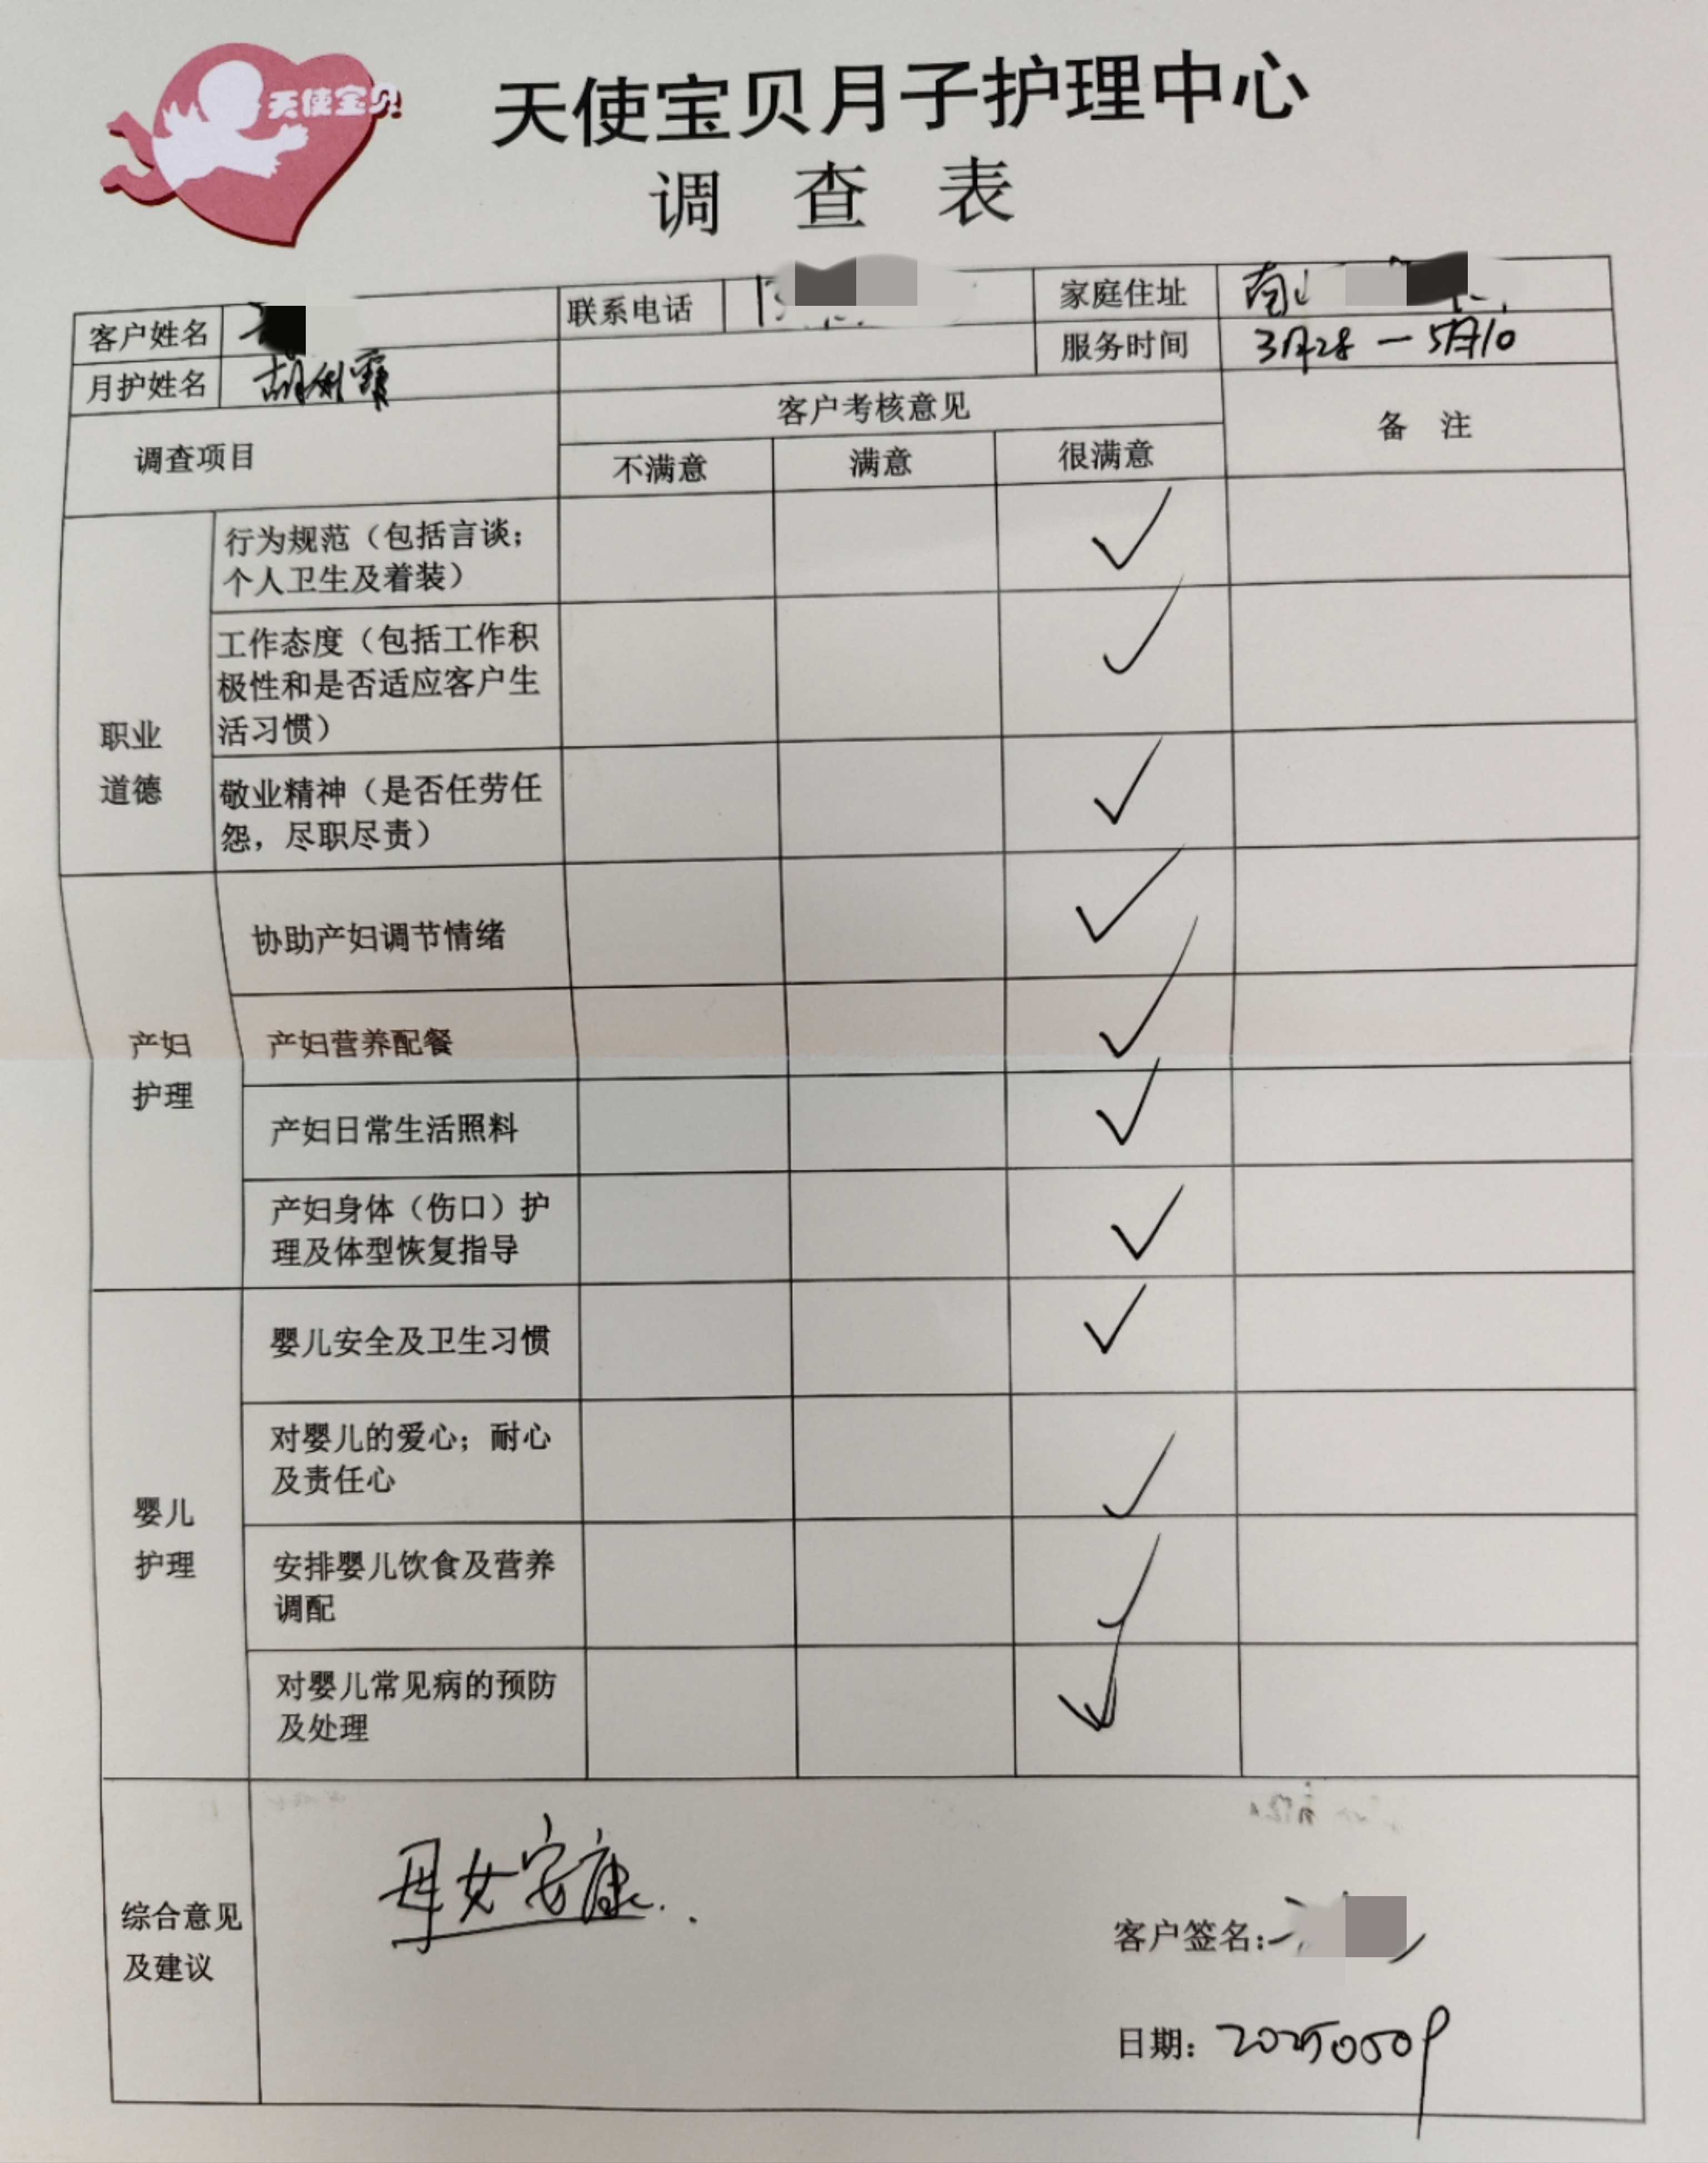 天使宝贝
天使宝贝月子护理中心
调 查 表
客户姓名
联系电话
家庭住址
月护姓名 胡利霞
服务时间 3月28 — 5月10
调查项目
客户考核意见
备 注
不满意 满意 很满意
职业
道德
行为规范（包括言谈；
个人卫生及着装）
✓
工作态度（包括工作积
极性和是否适应客户生
活习惯）
✓
敬业精神（是否任劳任
怨，尽职尽责）
✓
产妇
护理
协助产妇调节情绪 ✓
产妇营养配餐 ✓
产妇日常生活照料 ✓
产妇身体（伤口）护
理及体型恢复指导
✓
婴儿
护理
婴儿安全及卫生习惯 ✓
对婴儿的爱心；耐心
及责任心
✓
安排婴儿饮食及营养
调配
✓
对婴儿常见病的预防
及处理
✓
综合意见
及建议
母女安康..
客户签名：
日期：20250509